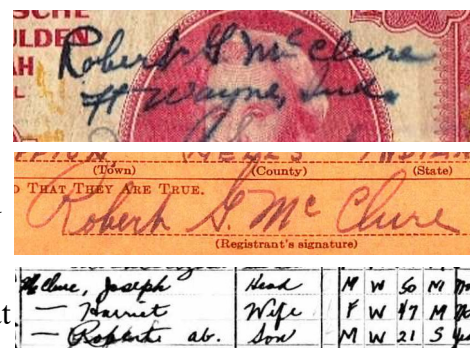 SCHE
ULDEN
AH
L
Robert G McClure
Ft Wayne, Ind.
(Town) (County) (State)
D THAT THEY ARE TRUE.
Robert G. Mc Clure
(Registrant's signature)
McClure, Joseph Head M W 50 M
— Harriet Wife F W 47 M
— Roberte ab. Son M W 21 S
t